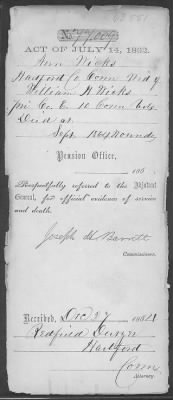 No. 77,009
ACT OF JULY 14, 1862.
Ann Nicks
Hartford Co Conn Wid of
William H. Nicks
Pri Co. E. 10 Conn Vols
Died at
Sept 1864 Wounds
Pension Office,
186
Respectfully referred to the Adjutant
General, for official evidence of service
and death.
Joseph H. Barrett
Commissioner.
Received, Dec 27 1864
Redfield
Hartford
Conn
Attorney.